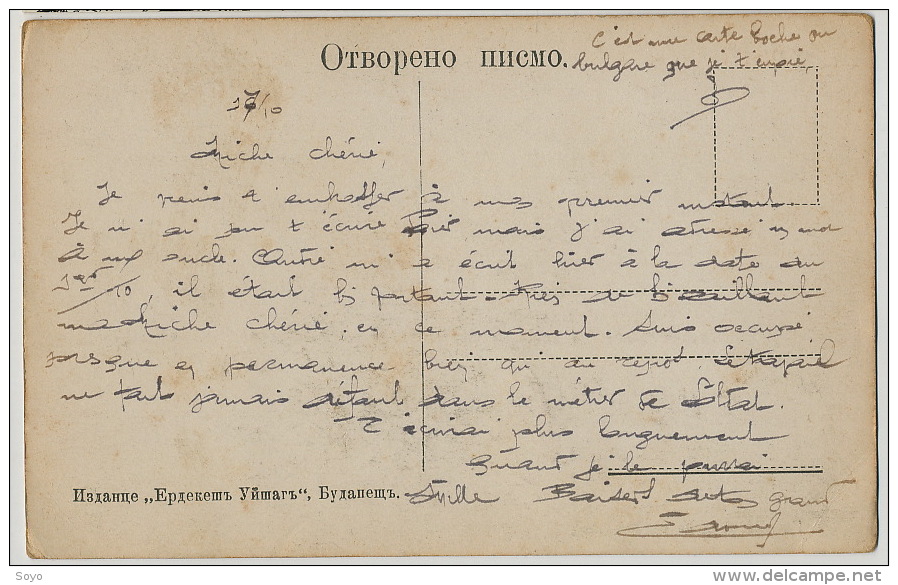 C'est une carte boche ou
Отворено писмо.
bulgare que je t'envoie,
17/10
Miche chérie,
Je viens t'embrasser à mon premier instant.
Je n'ai pu t'écrire hier mais j'ai adressé un mot
à mon oncle. André m'a écrit hier à la date du
1er/10, il était bien portant. Très de
ma Miche chérie, en ce moment. Suis occupé
presque en permanence bien qu'au dépôt, le travail
ne fait jamais défaut dans le métier de
T'écrirai plus longuement
quand je le pourrai
Mille Baisers de ton grand
Изданце „Ердекешъ Уйшагъ“, Будапещъ.
Soyo
delcampe.net